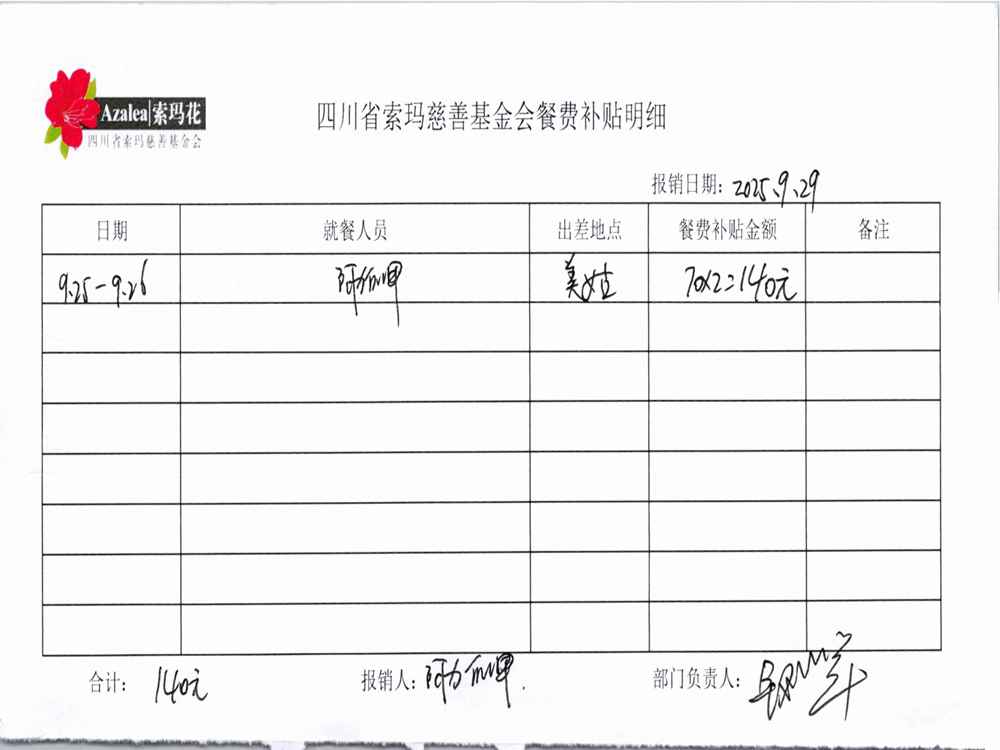 Azalea|索玛花
四川省索玛慈善基金会
四川省索玛慈善基金会餐费补贴明细
报销日期：2025.9.29
日期 就餐人员 出差地点 餐费补贴金额 备注
9.25-9.26 阿力 美姑 70×2=140元
合计：140元 报销人：阿力 部门负责人：